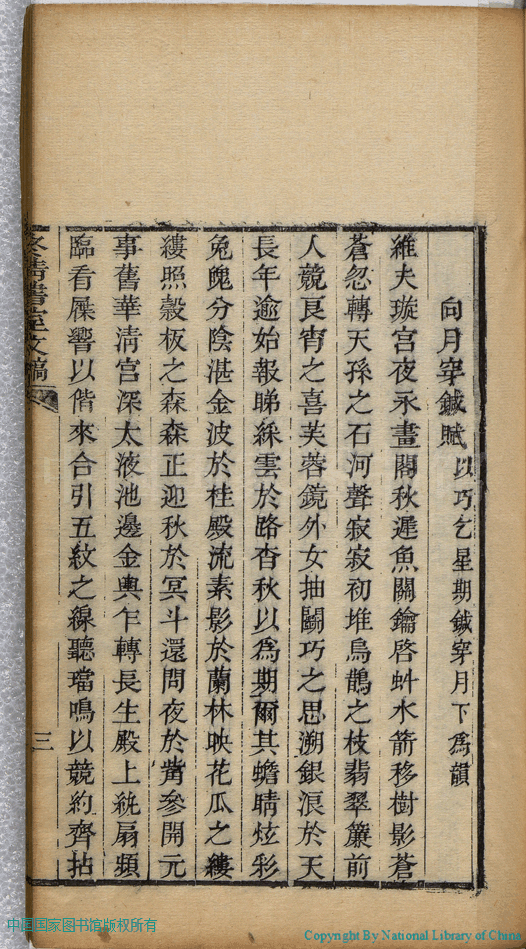 向月穿鍼賦以巧乞星期鍼穿月下為韻
維夫璇宮夜永畫閣秋遲魚關鑰啓虯水箭移樹影蒼
蒼忽轉天孫之石河聲寂寂初堆烏鵲之枝翡翠簾前
人競良宵之喜芙蓉鏡外女抽鬭巧之思溯銀浪於天
長年逾始報睇綵雲於路杳秋以為期爾其蟾睛炫彩
兔魄分陰湛金波於桂殿流素影於蘭林映花瓜之縷
縷照縠板之森森正迎秋於冥斗還問夜於觜參開元
事舊華清宮深太液池邊金輿乍轉長生殿上紈扇頻
臨看屧響以偕來合引五紋之線聽璫鳴以競約齊拈
書室文稿
三
中国国家图书馆版权所有
Copyright By National Library of China